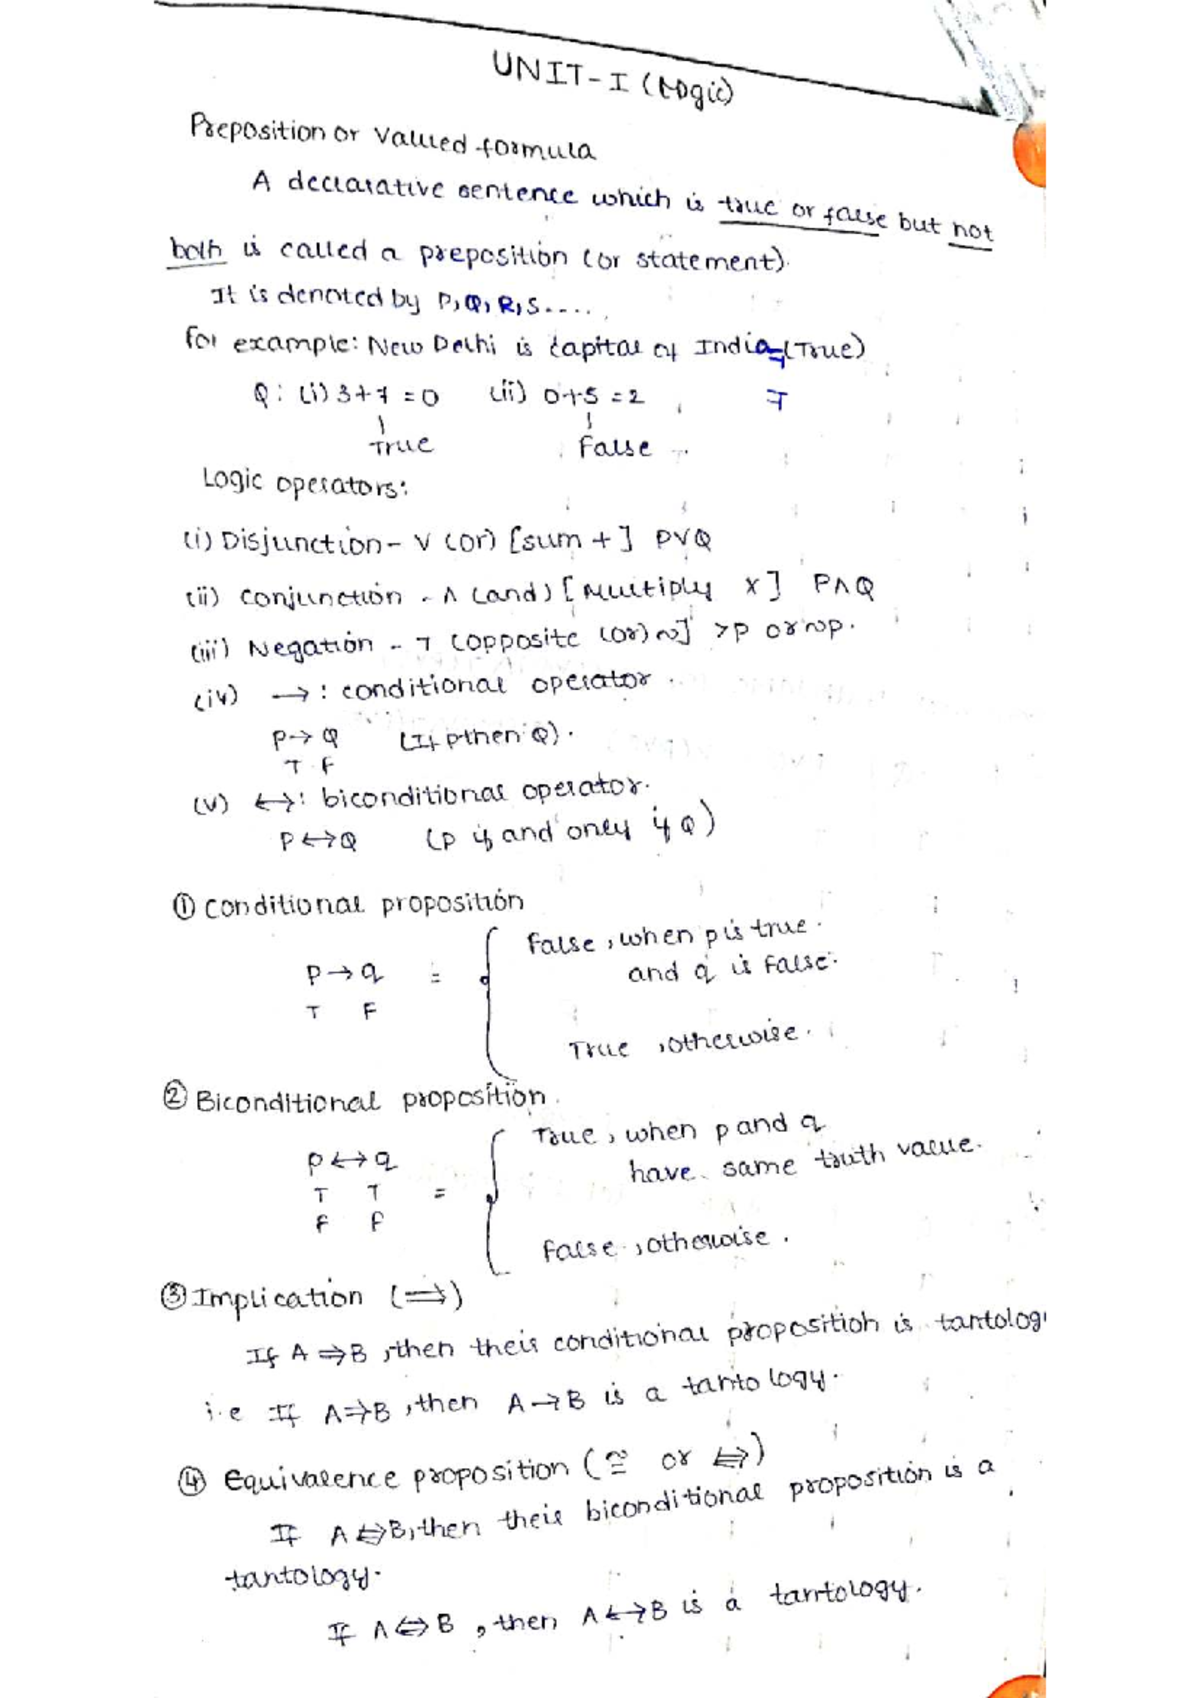 UNIT-I (Logic)
Preposition or Valued formula
A declarative sentence which is true or false but not
both is called a preposition (or statement).
It is denoted by P, Q, R, S.....,
For example: New Delhi is capital of India (True)
Q: (i) 3+7=0 (ii) 0+5=2
True False
Logic operators:
(i) Disjunction - ∨ (or) [sum +] P∨Q
(ii) conjunction - ∧ (and) [Multiply x] P∧Q
(iii) Negation - ¬ (opposite (or) ~] ¬P or ~p.
(iv) →: conditional operator.
P→Q (If p then Q).
T F
(v) ↔: biconditional operator.
P↔Q (p if and only if Q)
① conditional proposition
p→q = { False, when p is true.
and q is False.
T F
True, otherwise.
② Biconditional proposition.
p↔q = { True, when p and q
have same truth value.
T T
F F
False, otherwise.
③ Implication (⇒)
If A⇒B, then their conditional proposition is tantolog
i.e If A⇒B, then A→B is a tantology.
④ Equivalence proposition (≅ or ⇔)
If A⇔B, then their biconditional proposition is a
tantology.
If A⇔B, then A↔B is a tantology.